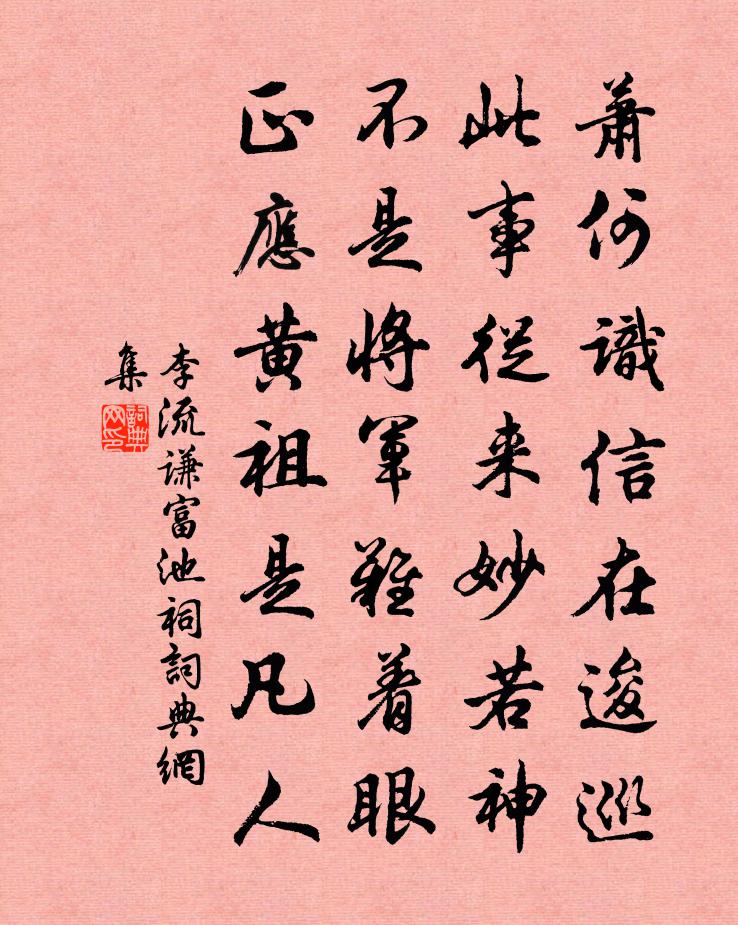 蕭何識信在逡巡
此事從来妙若神
不是將軍難着眼
正應黄祖是凡人
李流谦富池祠詞典網
集
詞典
网印